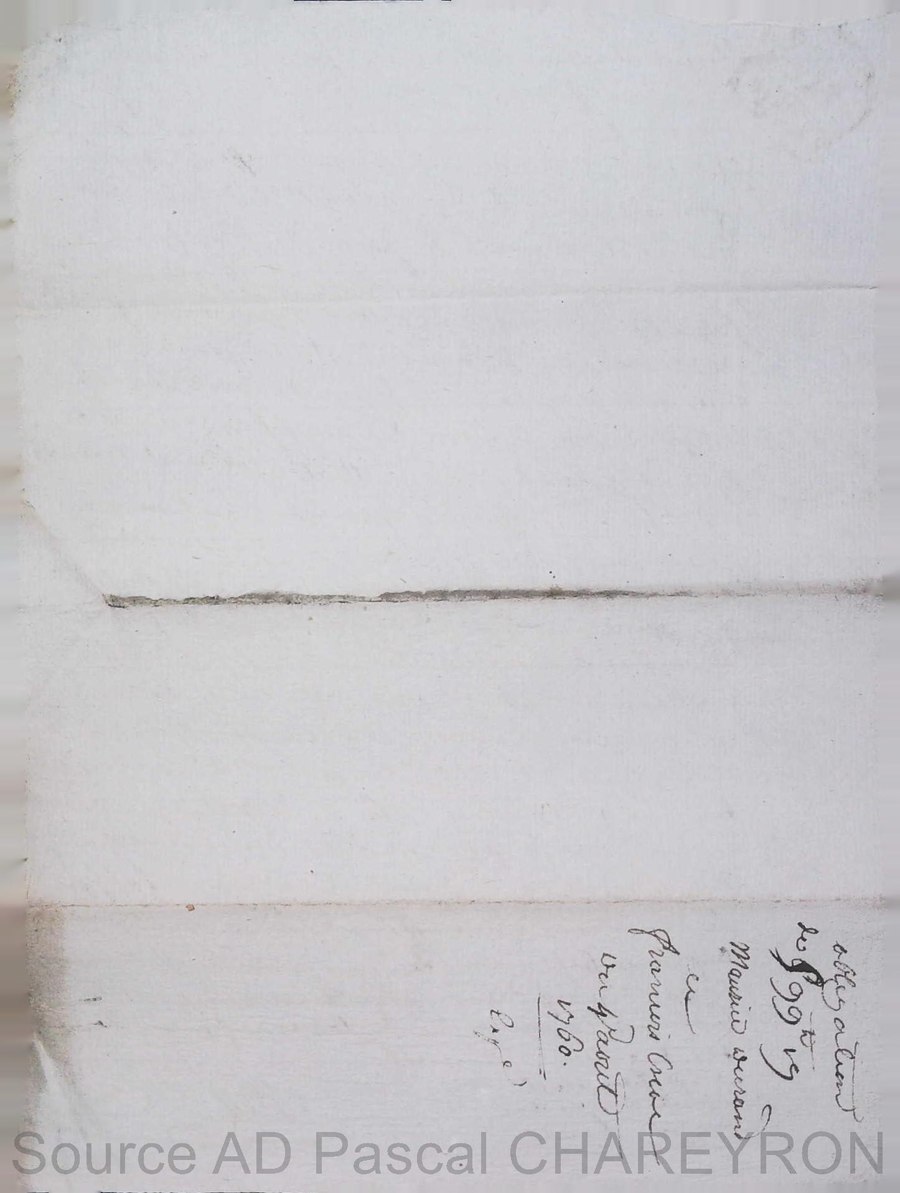 obligation
de 99ᵗᵗ 19
Maurice durand
et
francois
du 4 aoust
1760.
Source AD Pascal CHAREYRON